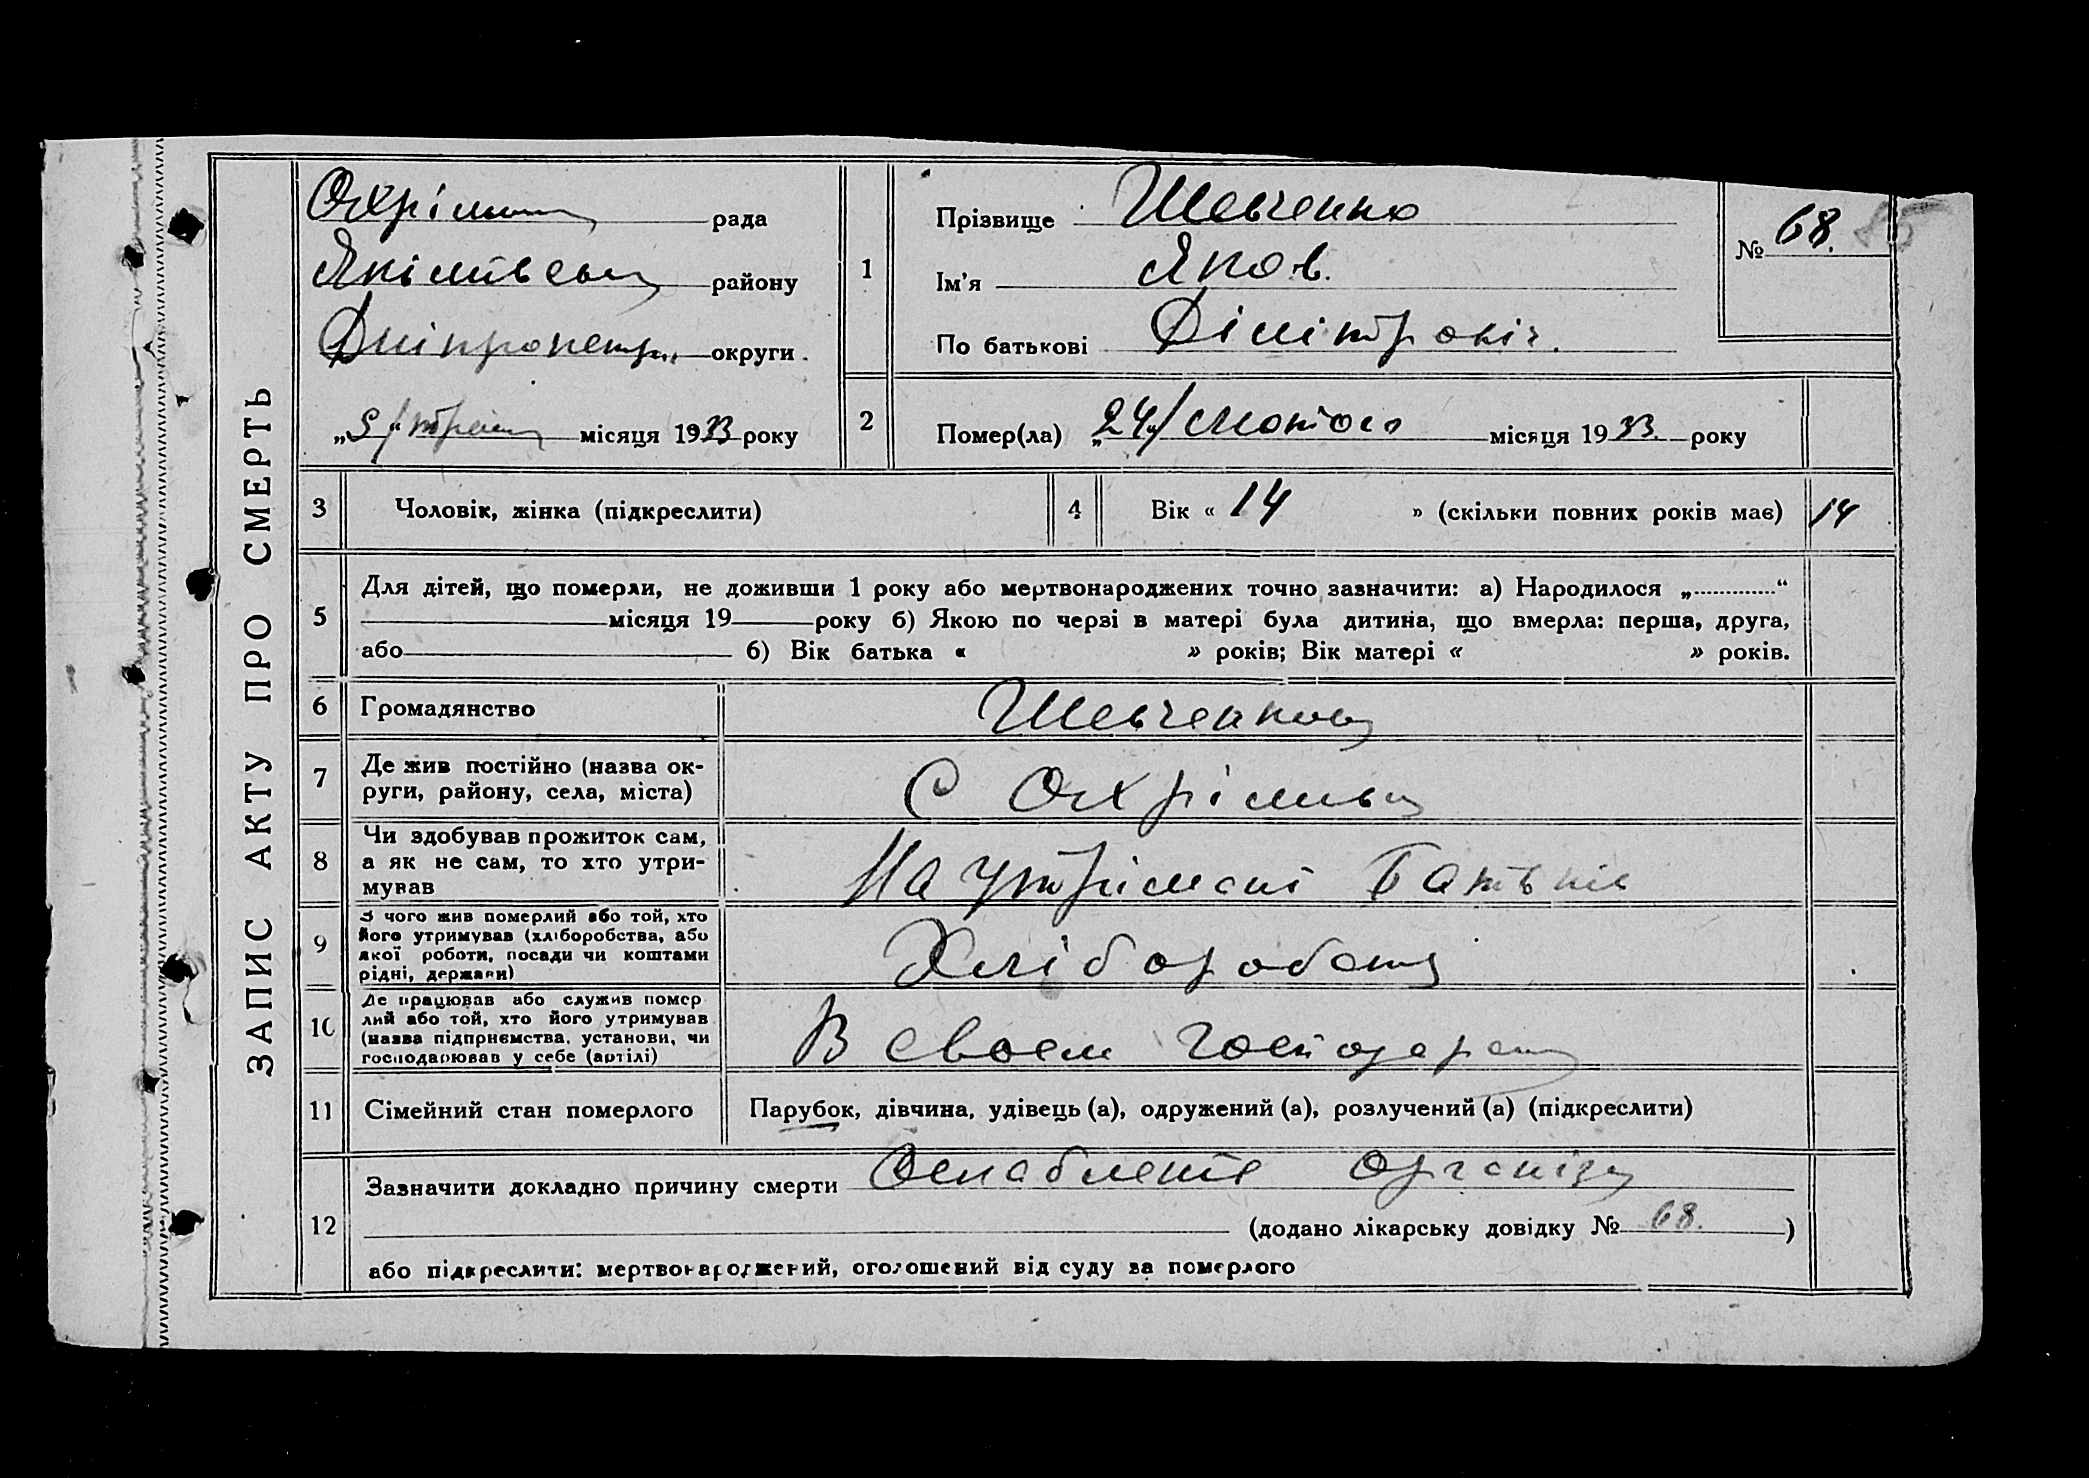 ЗАПИС АКТУ ПРО СМЕРТЬ
рада
району
Дніпропетр.. округи.
„5“ місяця 1933 року
1
Прізвище Шевченко
Ім'я Яков.
По батькові Дімітровіч.
№ 68. 85
2
Помер(ла) „24“ лютого місяця 1933. року
3
Чоловік, жінка (підкреслити)
4
Вік « 14 » (скільки повних років має)
14
5
Для дітей, що померли, не доживши 1 року або мертвонароджених точно зазначити: а) Народилося „.............“
місяця 19 року б) Якою по черзі в матері була дитина, що вмерла: перша, друга,
або б) Вік батька « » років; Вік матері « » років.
6
Громадянство
7
Де жив постійно (назва ок-
руги, району, села, міста)
С
8
Чи здобував прожиток сам,
а як не сам, то хто утри-
мував
На утрімані Батьків
9
З чого жив померлий або той, хто
його утримував (хліборобства, або
якої роботи, посади чи коштами
рідні, держави)
10
Де працював або служив помер
лий або той, хто його утримував
(назва підприємства, установи, чи
господарював у себе (артілі)
В своем
11
Сімейний стан померлого
Парубок, дівчина, удівець (а), одружений (а), розлучений (а) (підкреслити)
12
Зазначити докладно причину смерти Ослабление
(додано лікарську довідку № 68. )
або підкреслити: мертвонароджений, оголошений від суду за померлого